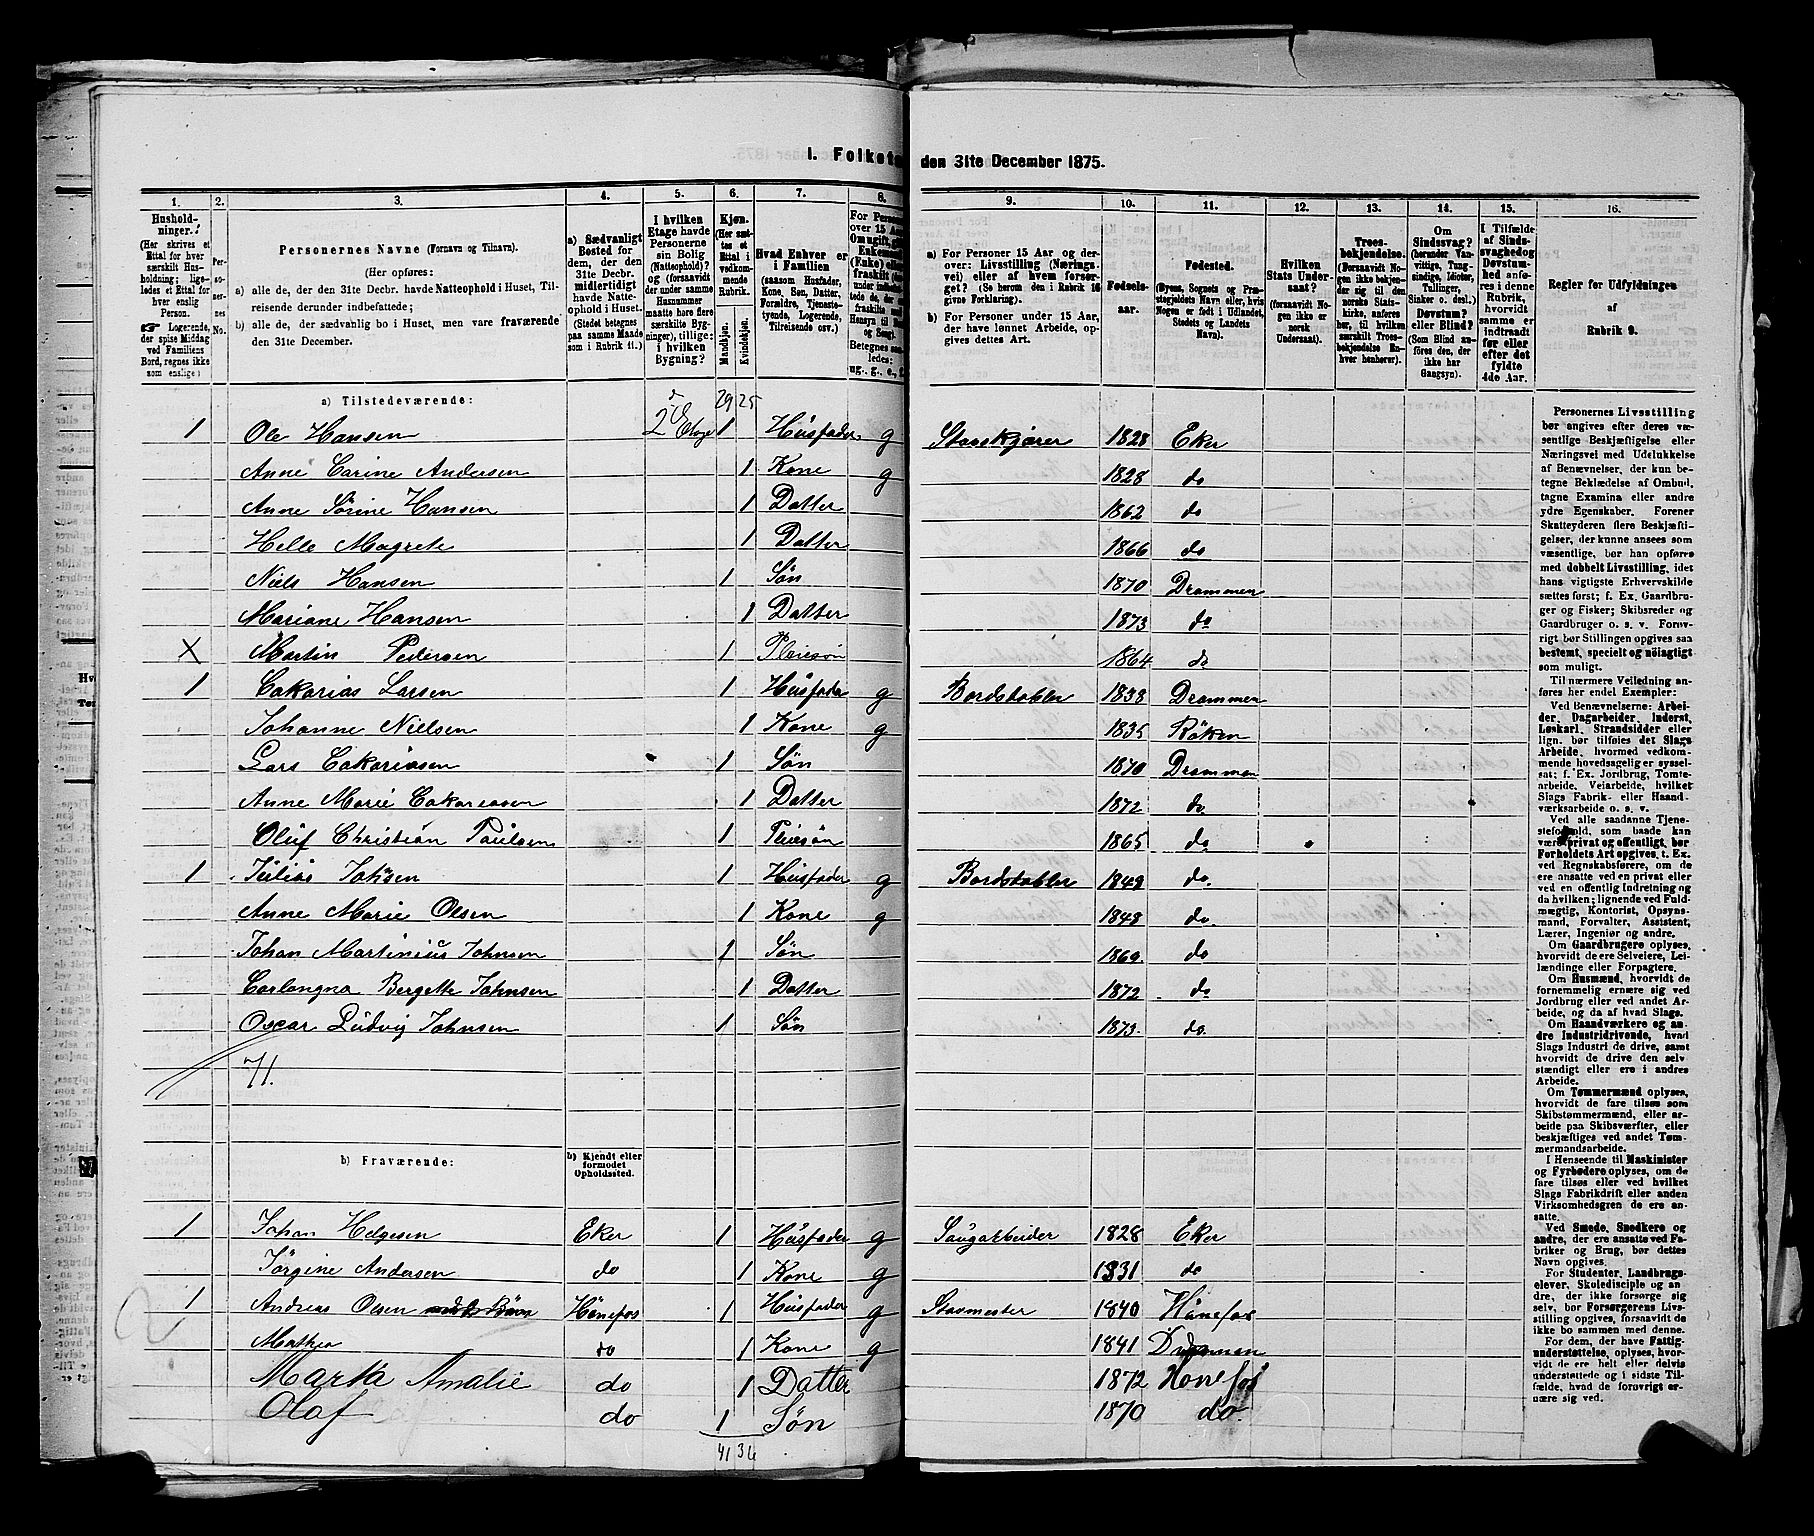 I. Folket
den 31te December 1875.
1. 2. 3. 4. 5. 6. 7. 8. 9. 10. 11. 12. 13. 14. 15. 16.
Hushold-
ninger.
(Her skrives et
Ettal for hver
særskilt Hus-
holdning; lige-
ledes et Ettal for
hver enslig
Person.
Logerende,
der spise Middag
ved Familiens
Bord, regnes ikke
som enslige)
Per-
so-
ner-
nes
No.
Personernes Navne (Fornavn og Tilnavn).
(Her opføres:
a) alle de, der den 31te Decbr. havde Natteophold i Huset, Til-
reisende derunder indbefattede;
b) alle de, der sædvanlig bo i Huset, men vare fraværende
den 31te December.
a) Sædvanligt
Bosted for
dem, der den
31te Decbr.
midlertidigt
havde Natte-
ophold i Huset.
(Stedet betegnes
paa samme Maade
som i Rubrik 11.)
I hvilken
Etage havde
Personerne
sin Bolig
(Natteophold)?
(forsaavidt
der under samme
Husnummer
maatte høre flere
særskilte Byg-
ninger), tillige:
i hvilken
Bygning?
Kjøn.
(Her sæt-
tes et
Ettal i
vedkom-
mende
Rubrik.
Mandkjøn.
Kvindekjøn.
Hvad Enhver er
i Familien
(saasom Husfader,
Kone, Søn, Datter,
Forældre, Tjeneste-
tyende, Logerende,
Tilreisende osv.)
a) For Personer 15 Aar og der-
over: Livsstilling (Nærings-
vei) eller af hvem forsør-
get? (Se herom den i Rubrik 16
givne Forklaring).
b) For Personer under 15 Aar,
der have lønnet Arbeide, op-
gives dettes Art.
Fødsels-
aar.
Fødested.
(Byens, Sognets og Præ-
stegjeldets Navn eller, hvis
Nogen er født i Udlandet,
Stedets og Landets
Navn).
Hvilken
Stats Under-
saat?
(forsaavidt No-
gen ikke er
norsk
Undersaat).
Troes-
bekjendelse.
(Forsaavidt No-
gen ikke bekjen-
der sig til den
norske Stats-
kirke, anføres
her, til hvilken
særskilt Troes-
bekjendelse En-
hver henhører).
Om
Sindssvag?
(herunder Van-
vittige, Tung-
sindige, Idioter,
Tullinger,
Sinker o. desl.)
Døvstum?
eller Blind?
(Som Blind an-
føres den, der
ikke har
Gangsyn).
I Tilfælde
af Sinds-
svaghed og
Døvstum-
hed anfø-
res i denne
Rubrik,
hvorvidt
samme er
indtraadt
før eller
efter det
fyldte
4de Aar.
Regler for Udfyldningen
af
Rubrik 9.
a) Tilstedeværende: 29 25
1 Ole Hansen 2 Etage 1 Husfader g Stavskjører 1828 Eker
Anne Carine Andersen 1 Kone g 1828 do
Anne Sørine Hansen 1 Datter 1862 do
Helle Magrete 1 Datter 1866 do
Niels Hansen 1 Søn 1870 Drammen
Mariane Hansen 1 Datter 1873 do
X Martin Pedersen 1 Pleiesøn 1864 do
1 Cakarias Larsen 1 Husfader g Bordstabler 1838 Drammen
Johanne Nielsen 1 Kone g 1835 Röken
Lars Cakariasen 1 Søn 1870 Drammen
Anne Marie Cakariasen 1 Datter 1872 do
Oluf Christian Paulsen 1 Pleiesøn 1865 do
1 Julius Johnsen 1 Husfader g Bordstabler 1849 do.
Anne Marie Olsen 1 Kone g 1848 do
Johan Martinius Johnsen 1 Søn 1869. do
Bergette Johnsen 1 Datter 1872 do
Oscar Ludvig Johnsen 1 Søn 1873. do.
71.
b) Fraværende: b) Kjendt eller
formodet
Opholdssted.
1 Johan Helgesen Eker 1 Husfader g Saugarbeider 1828 Eker
Jörgine Andersen do 1 Kone g 1831 do
1 Andreas Olsen Hönefos 1 Husfader g Stavmester 1840 Hönefos
Mathea do 1 Kone g 1841 Drammen
Marta Amalie do 1 Datter 1872 Hönefos
Olaf do 1 Søn 1870 do.
41 36
Personernes Livsstilling
bør angives efter deres væ-
sentlige Beskjæftigelse eller
Næringsvei med Udelukkelse
af Benævnelser, der kun be-
tegne Beklædelse af Ombud,
tagne Examina eller andre
ydre Egenskaber. Forener
Skatteyderen flere Beskjæfti-
gelser, der kunne ansees som
væsentlige, bør han opføres
med dobbelt Livsstilling, idet
hans vigtigste Erhvervskilde
sættes først; f. Ex. Gaardbru-
ger og Fisker; Skibsreder og
Gaardbruger o. s. v. Forøv-
rigt bør Stillingen opgives saa
bestemt, specielt og nøiagtigt
som muligt.
Til nærmere Veiledning an-
føres her endel Exempler:
Ved Benævnelserne: Arbei-
der, Dagarbeider, Inderst,
Løskarl, Strandsidder eller
lign. bør tilføies det Slags
Arbeide, hvormed vedkom-
mende hovedsagelig er syssel-
sat; f. Ex. Jordbrug, Tomte-
arbeide, Veiarbeide, hvilket
Slags Fabrik- eller Haand-
værksarbeide o. s. v.
Ved alle saadanne Tjene-
steforhold, som baade kan
være privat og offentligt, bør
Forholdets Art opgives, t. Ex.
ved Regnskabsførere, om de
ere ansatte ved en privat eller
ved en offentlig Indretning og
da hvilken; lignende ved Fuld-
mægtig, Kontorist, Opsyns-
mand, Forvalter, Assistent,
Lærer, Ingeniør og andre.
Om Gaardbrugere oplyses,
hvorvidt de ere Selveiere, Lei-
lændinge eller Forpagtere.
Om Husmænd, hvorvidt de
fornemmelig ernære sig ved
Jordbrug eller ved andet Ar-
beide, og da af hvad Slags.
Om Haandværkere og an-
dre Industridrivende, hvad
Slags Industri de drive, samt
hvorvidt de drive den selv-
stændigt eller ere i andres
Arbeide.
Om Tømmermænd oplyses,
hvorvidt de fare tilsøs som
Skibstømmermænd, eller ar-
beide paa Skibsværfter, eller
beskjæftiges ved andet Tøm-
mermandsarbeide.
I Henseende til Maskinister
og Fyrbødere oplyses, om de
fare tilsøs eller ved hvilket
Slags Fabrikdrift eller anden
Virksomhedsgren de ere an-
satte.
Ved Smede, Snedkere og
andre, der ere ansatte ved Fa-
briker og Brug, bør dettes
Navn opgives.
For Studenter, Landbrugs-
elever, Skoledisciple og an-
dre, der ikke forsørge sig
selv, bør Forsørgerens Livs-
stilling opgives, forsaavidt de
ikke bo sammen med denne.
For dem, der have Fattig-
understøttelse, oplyses, hvor-
vidt de ere helt eller delvis
understøttede og i sidste Til-
fælde, hvad de forøvrigt er-
nære sig ved.